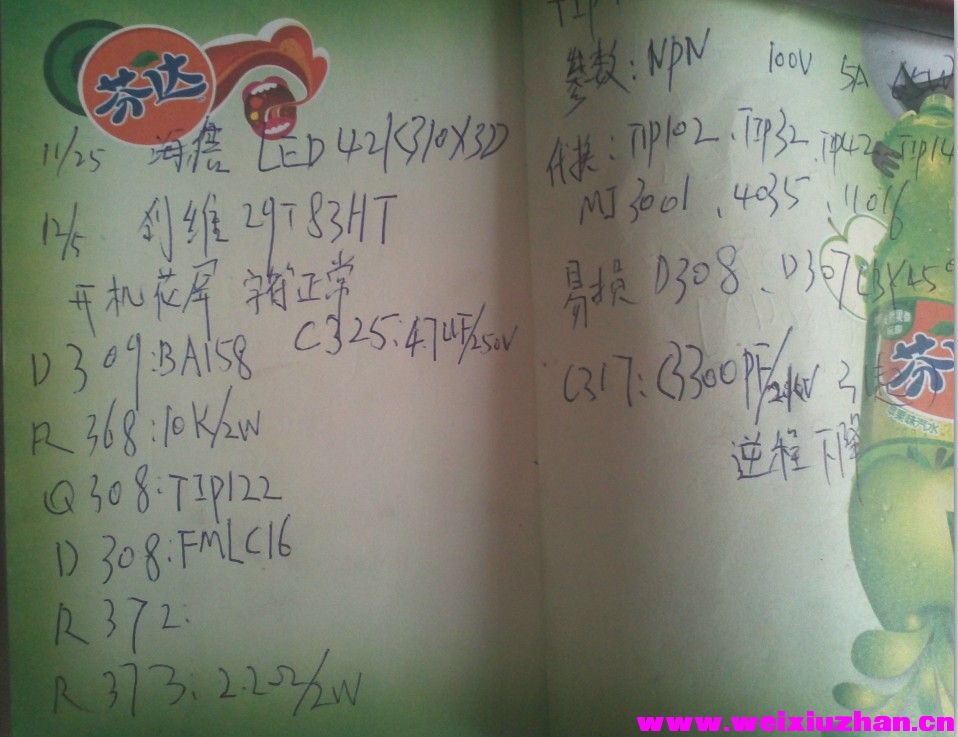 芬达
11/25 海信 LED42K310X3D
12/5 创维 29T83HT
开机花屏 字符正常
D309:BA158 C325:4.7UF/250V
R368:10K/2W
Q308:TIP122
D308:FMLG16
R372:
R373:2.2Ω/2W
TIP
参数:NPN 100V 5A 65W
代换:TIP102、TIP32、TIP42、TIP14
MJ3001、4035、11016
易损 D308、D307
C317:C3300PF/2KV 引起
逆程下降
芬
苹果味汽水
www.weixiuzhan.cn